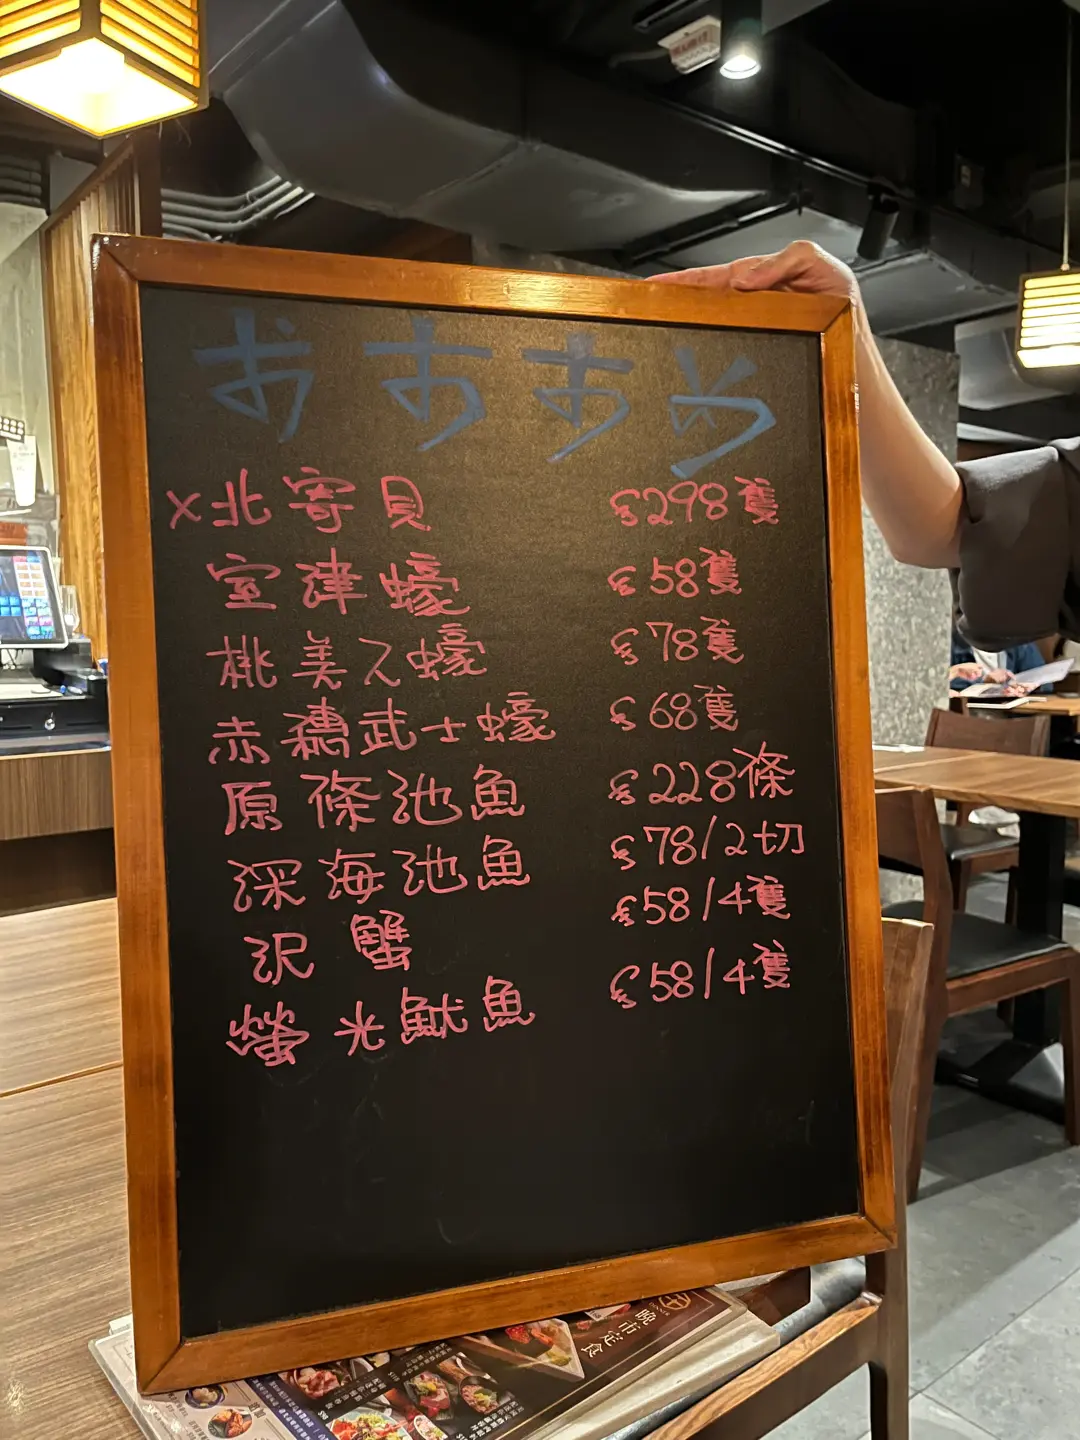 おすすめ
x北寄貝 $298隻
室津蠔 $58隻
桃美人蠔 $78隻
赤穗武士蠔 $68隻
原條池魚 $228條
深海池魚 $78/2切
沢蟹 $58/4隻
螢光魷魚 $58/4隻
晚市定食